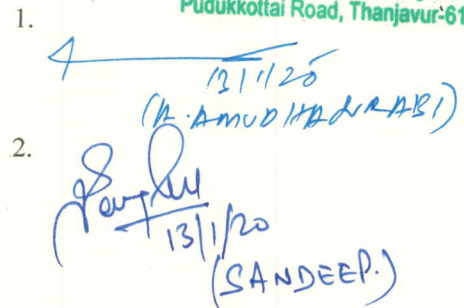 Pudukkottai Road, Thanjavur-61
1.
13/1/20
(A. AMUDHANRABI)
2.
13/1/20
(SANDEEP.)